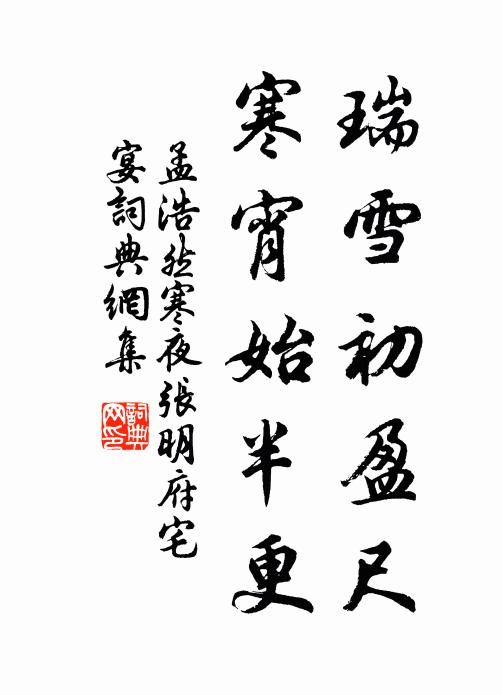 瑞雪初盈尺
寒宵始半更
孟浩然寒夜張明府宅
宴詞典網集
詞典
网印